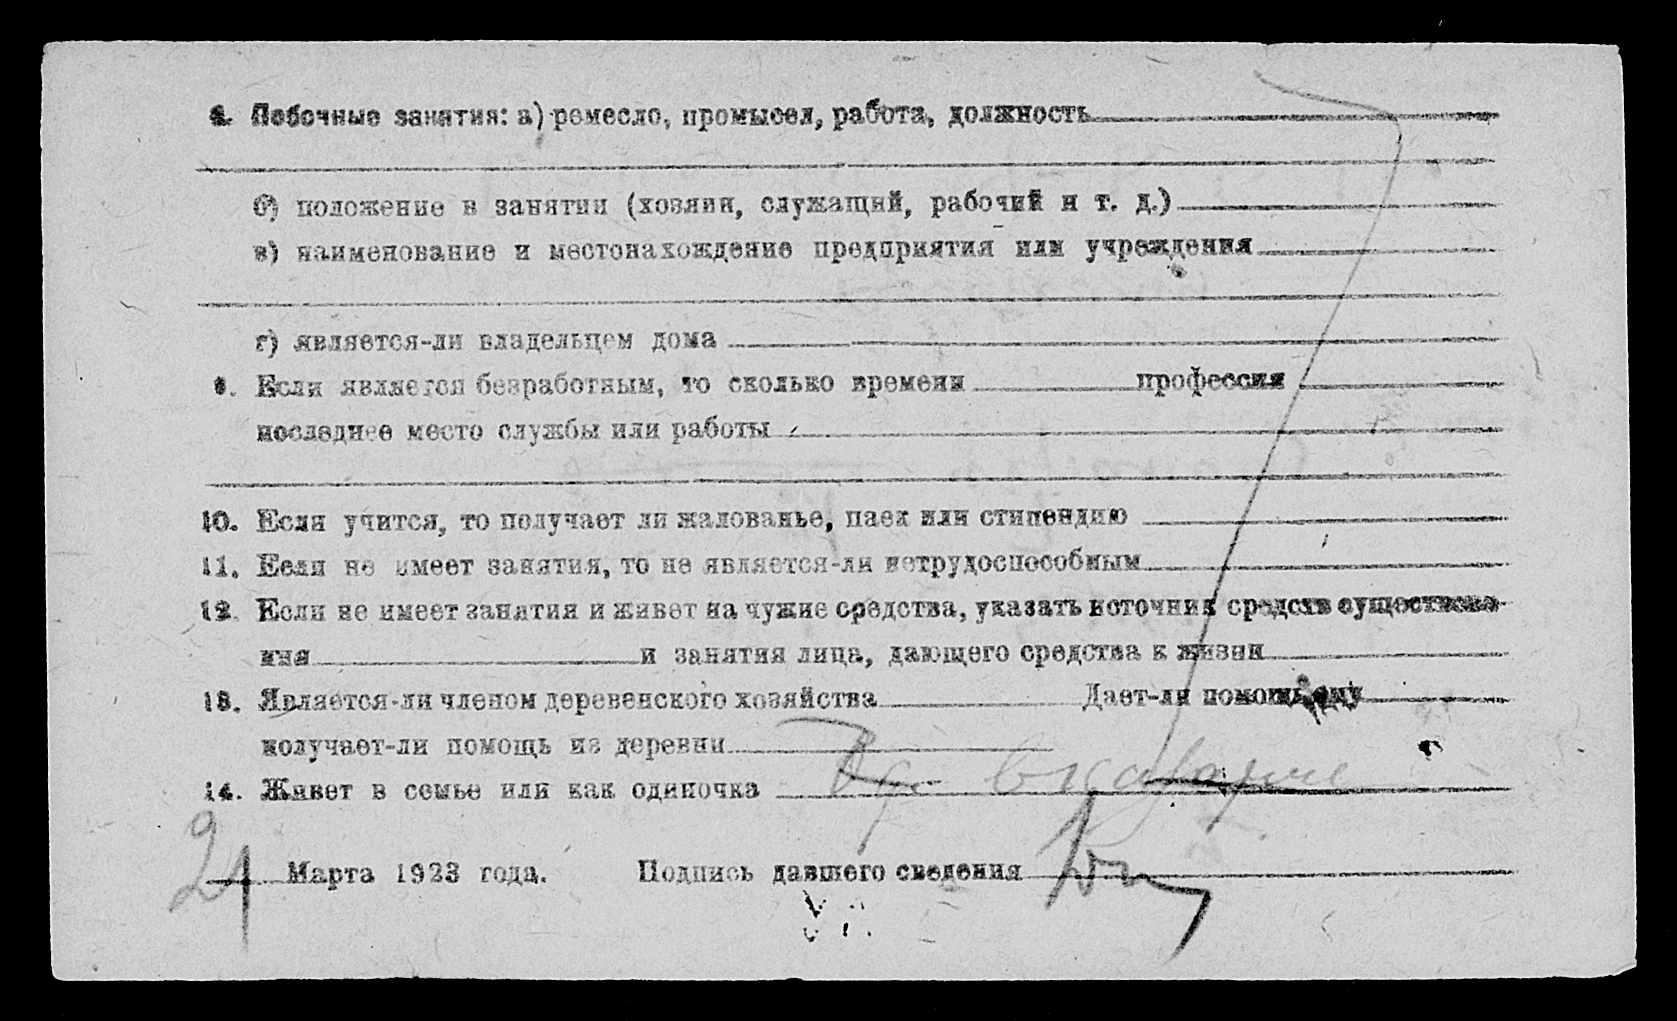 8. Побочные занятия: а) ремесло, промысел, работа, должность
б) положение в занятии (хозяин, служащий, рабочий и т. д.)
в) наименование и местонахождение предприятия или учреждения
г) является-ли владельцем дома
9. Если является безработным, то сколько времени профессия
последнее место службы или работы
10. Если учится, то получает ли жалованье, паек или стипендию
11. Если не имеет занятия, то не является-ли нетрудоспособным
12. Если не имеет занятия и живет на чужие средства, указать источник средств существова-
ния и занятия лица, дающего средства к жизни
13. Является-ли членом деревенского хозяйства Дает-ли помощь ему
получает-ли помощь из деревни
14. Живет в семье или как одиночка
21 Марта 1923 года. Подпись давшего сведения